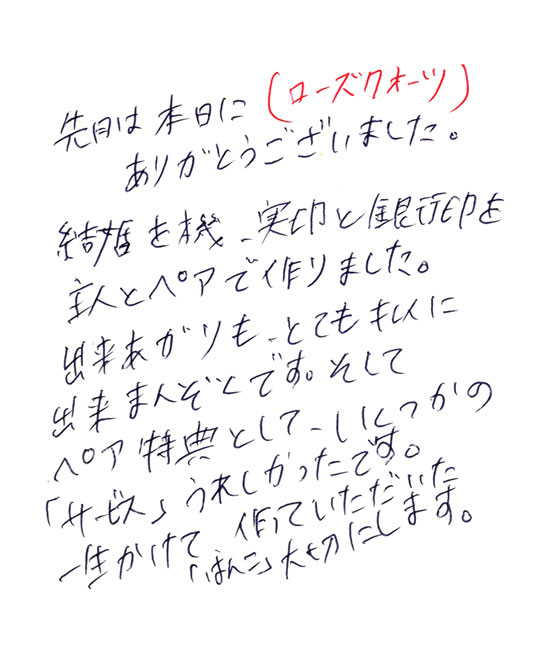 (ローズクォーツ)
先日は本日に
ありがとうございました。
結婚を機、実印と銀行印を
主人とペアで作りました。
出来あがりも、とてもキレイに
出来まんぞくです。そして
ペア特典として、いくつかの
「サービス」うれしかったです。
一生かけて 作っていただいた
「はんこ」大切にします。